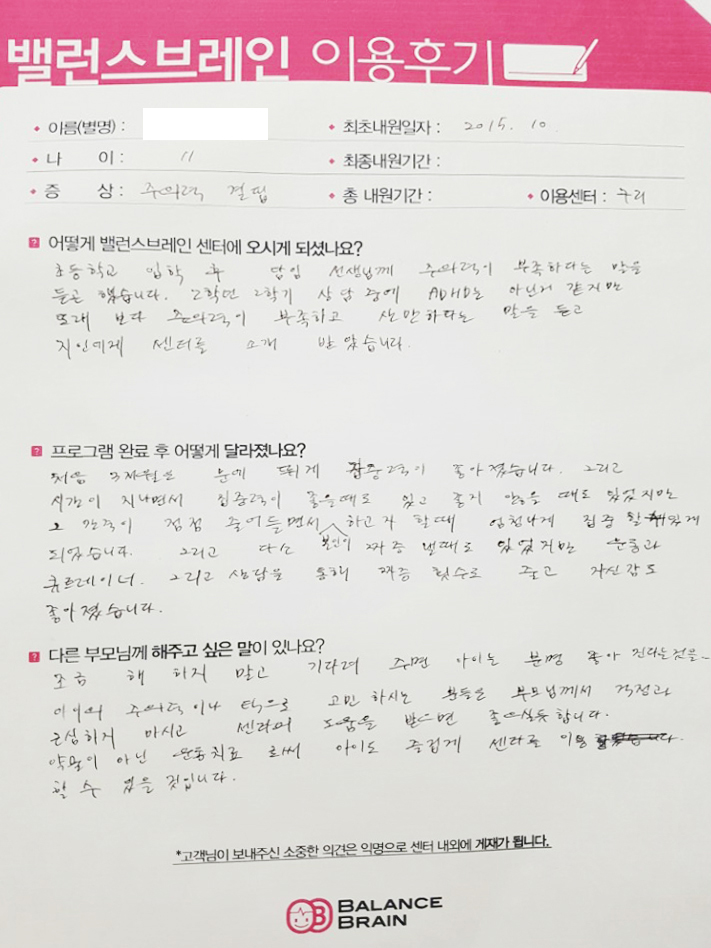 밸런스브레인 이용후기
이름(별명) :
최초내원일자 : 2015. 10.
나 이 : 11
최종내원기간 :
증 상 : 주의력 결핍
총 내원기간 :
이용센터 : 구리
? 어떻게 밸런스브레인 센터에 오시게 되셨나요?
초등학교 입학 후 담임 선생님께 주의력이 부족하다는 말을
듣곤 했습니다. 2학년 2학기 상담 중에 ADHD는 아닌거 같지만
또래 보다 주의력이 부족하고 산만하다는 말을 듣고
지인에게 센터를 소개 받았습니다.
? 프로그램 완료 후 어떻게 달라졌나요?
처음 3개월은 눈에 띄게 집중력이 좋아졌습니다. 그리고
시간이 지나면서 집중력이 좋을때도 있고 좋지 않을 때도 있었지만
그 간격이 점점 줄어들면서 하고자 할때 엄청나게 집중 할 수 있게
되었습니다. 그리고 다소 본인이 짜증 낼때도 있었지만 운동과
큐트레이너. 그리고 상담을 통해 짜증 횟수도 줄고 자신감도
좋아졌습니다.
? 다른 부모님께 해주고 싶은 말이 있나요?
조급 해 하지 말고 기다려 주면 아이는 분명 좋아 진다는것을~
아이의 주의력이나 틱으로 고민 하시는 분들은 부모님께서 걱정과
근심하지 마시고 센터의 도움을 받으면 좋을듯합니다.
약물이 아닌 운동치료 로써 아이도 즐겁게 센터를 이용
할 수 있을 것입니다.
*고객님이 보내주신 소중한 의견은 익명으로 센터 내외에 게재가 됩니다.
BALANCE
BRAIN